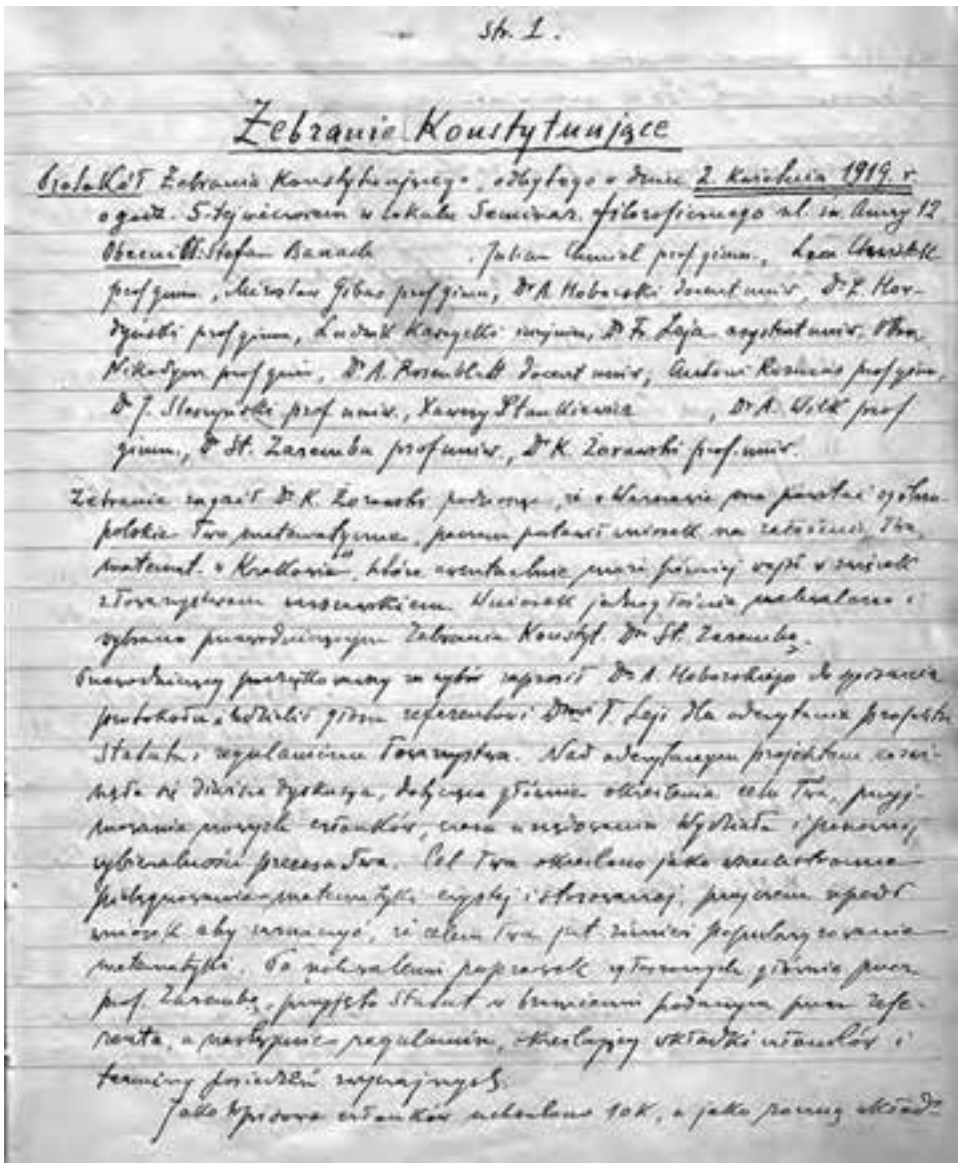 str. 1.
Zebranie Konstytuujące
Protokół Zebrania Konstytującego, odbytego w dniu 2 kwietnia 1919 r.
o godz. 5-tej wieczorem w lokalu Seminar. filozoficznego ul. św. Anny 12
Obecni: Stefan Banach , Julian Chmiel prof gimn., Leon Chwistek
prof gimn, Mirosław Gibas prof gimn, Dr A. Hoborski docent uniw, Dr Z. Hor-
dyński prof gimn, Ludwik Kaszycki, Dr Fr. Leja asystent uniw. Otton
Nikodym prof gimn, Dr A. Rosenblatt docent uniw, Antoni prof gimn,
Dr J. Sleszyński prof uniw., Xawery Stankiewicz , Dr A. Wilk prof
gimn., Dr St. Zaremba prof uniw., Dr K. Żorawski prof. uniw.
Zebranie zagaił Dr K. Żorawski podnosząc, iż w Warszawie ma powstać ogólno-
polskie Two matematyczne, poczem postawił wniosek na założenie "Twa
matemat. w Krakowie", które ewentualnie może później wejść w związek
z Towarzystwem warszawskiem. Wniosek jednogłośnie uchwalono i
wybrano przewodniczącym Zebrania Konstyt. Dra St. Zarembę.
Przewodniczący podziękowawszy za wybór zaprosił Dra A. Hoborskiego do spisania
protokołu i udzielił głosu referentowi Drowi F. Leji dla odczytania projektu
Statutu i regulaminu Towarzystwa. Nad odczytanym projektem rozwi-
nęła się dyskusya, dotycząca głównie określenia celu Twa, przyj-
mowania nowych członków, czasu urzędowania Wydziału i ponownej
wybieralności prezesa Twa. Cel Twa określono jako wszechstronne
pielęgnowanie matematyki czystej i stosowanej, przyczem upadł
wniosek aby zaznaczyć, iż celem Twa jest również popularyzowanie
matematyki. Po uchwaleniu poprawek zgłoszonych głównie przez
prof. Zarembę, przyjęto Statut w brzmieniu podanym przez refe-
renta, a następnie regulamin, określający wkładki członków i
terminy posiedzeń zwyczajnych.
Jako wpisowe członków uchwalono 10K, a jako roczną wkładkę